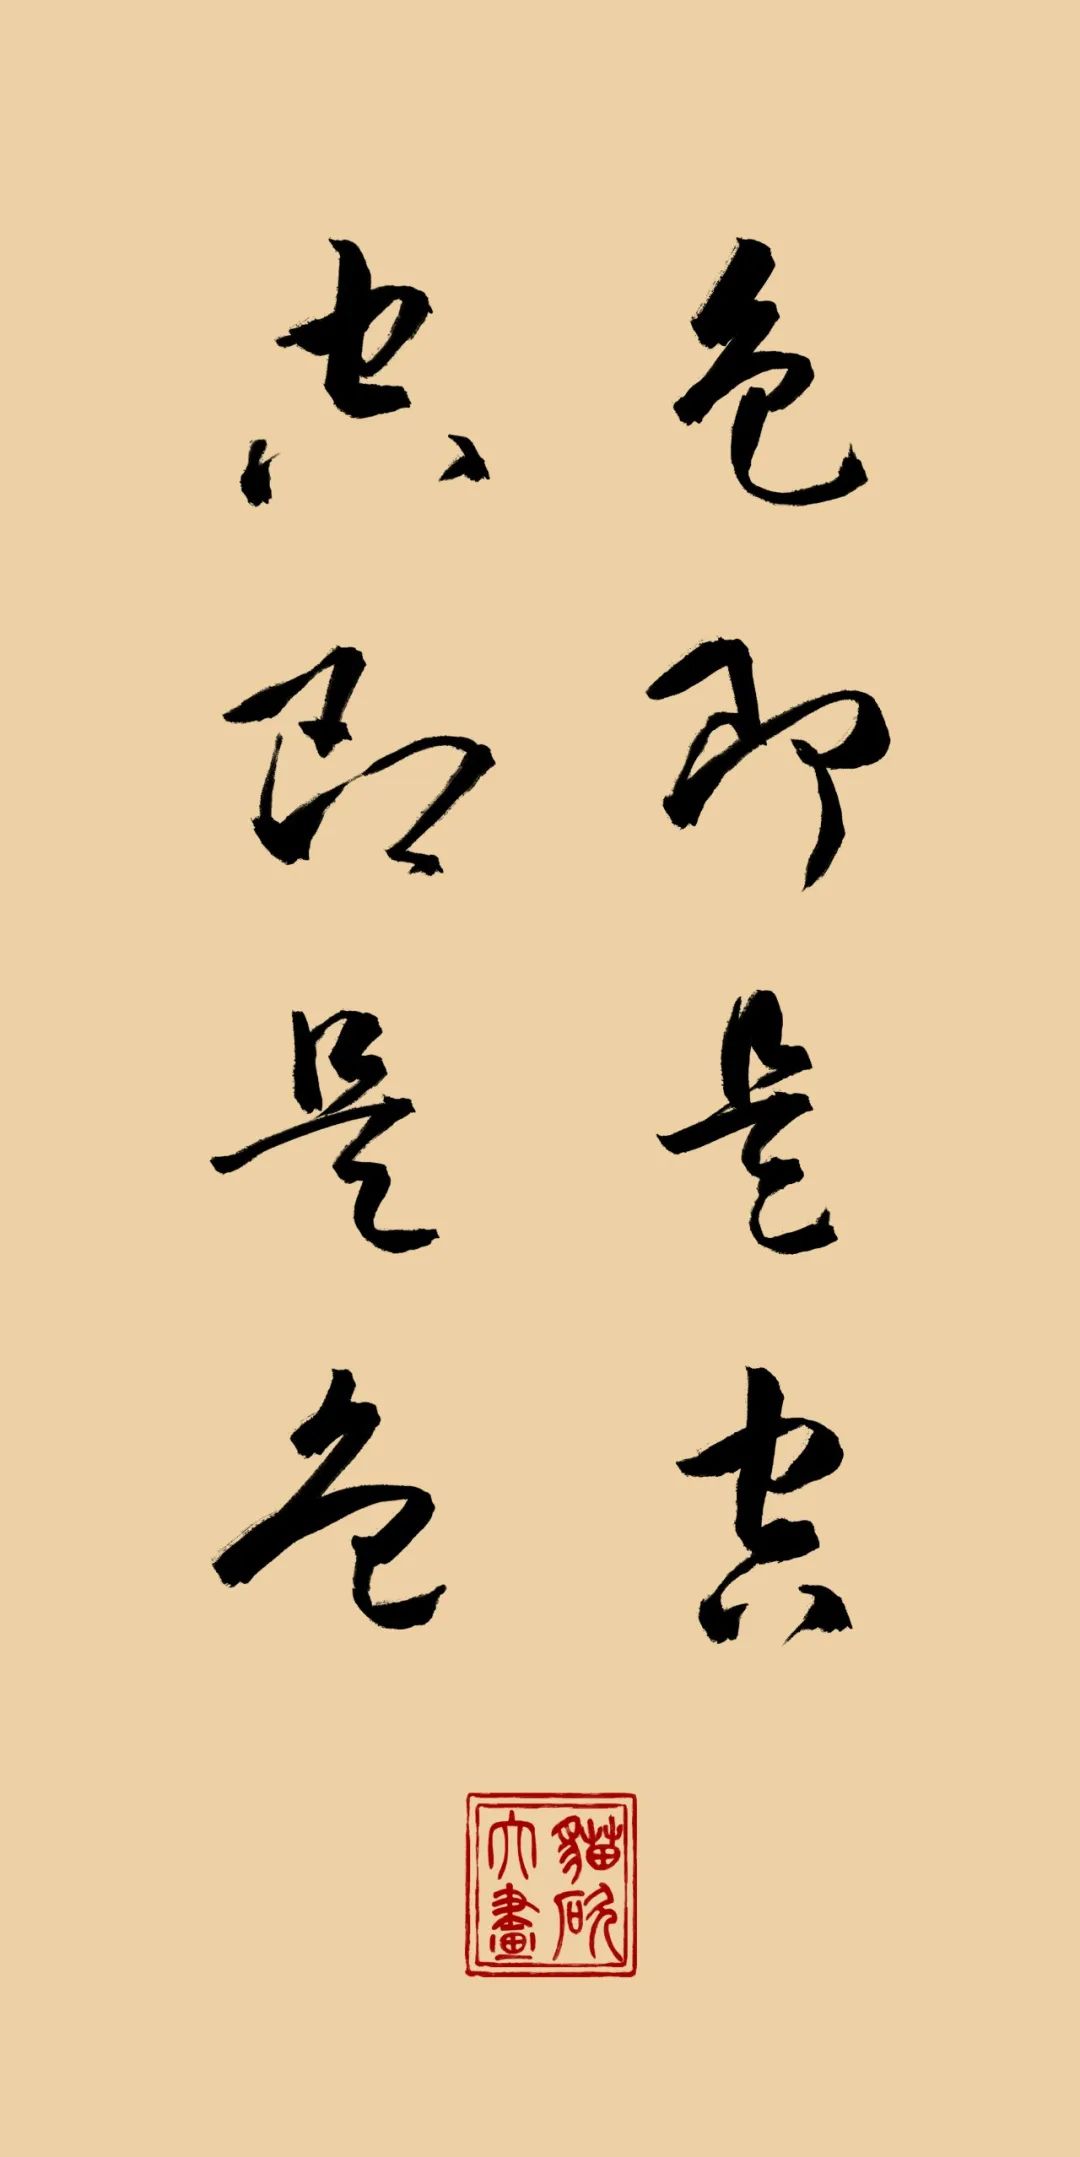 色即是空
空即是色
貓
畫